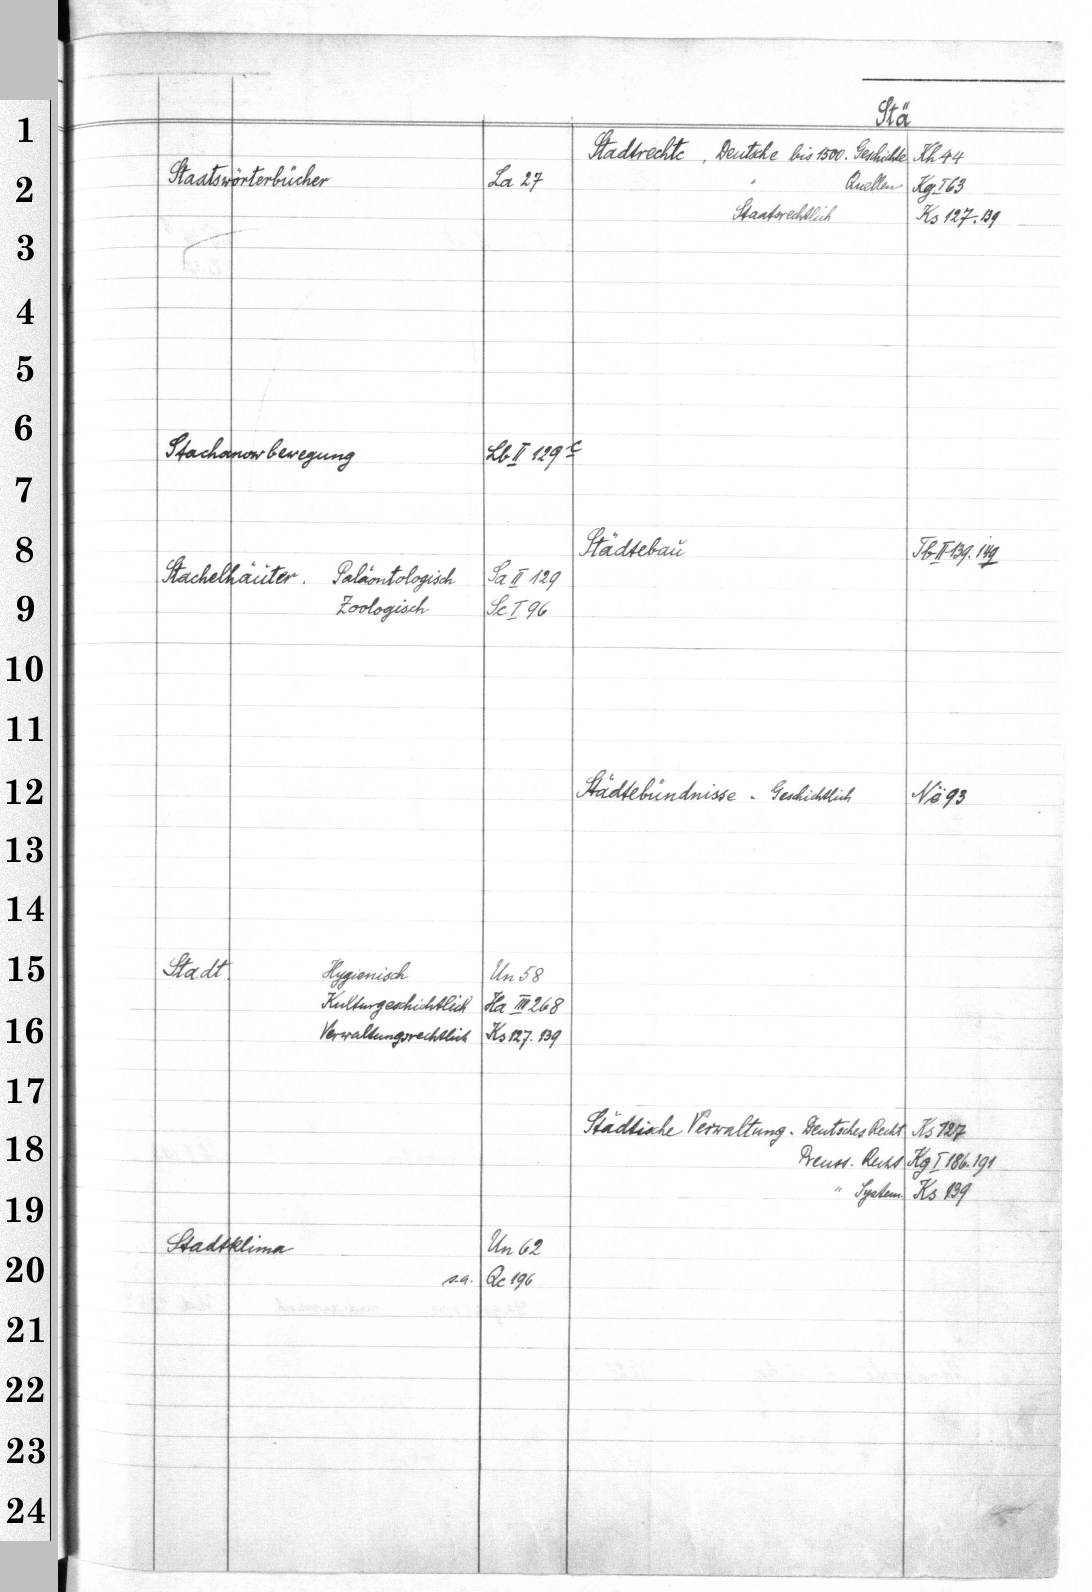 Stä
1
2
3
4
5
6
7
8
9
10
11
12
13
14
15
16
17
18
19
20
21
22
23
24
Staatswörterbücher La 27
Stachanowbewegung Lb II 129 c
Stachelhäuter. Paläontologisch Sa II 129
Zoologisch Sc I 96
Stadt. Hygienisch Un 58
Kulturgeschichtlich Ha III 268
Verwaltungsrechtlich Ks 127. 139
Stadtklima Un 62
s.a. Qc 196
Stadtrechte, Deutsche bis 1500. Geschichte Kh 44
" Quellen Kg I 63
Staatsrechtlich Ks 127. 139
Städtebau Tb II 139. 149
Städtebündnisse - Geschichtlich 93
Städtische Verwaltung. Deutsches Recht Ks 127
Preuss. Recht Kg I 186. 191
" System Ks 139